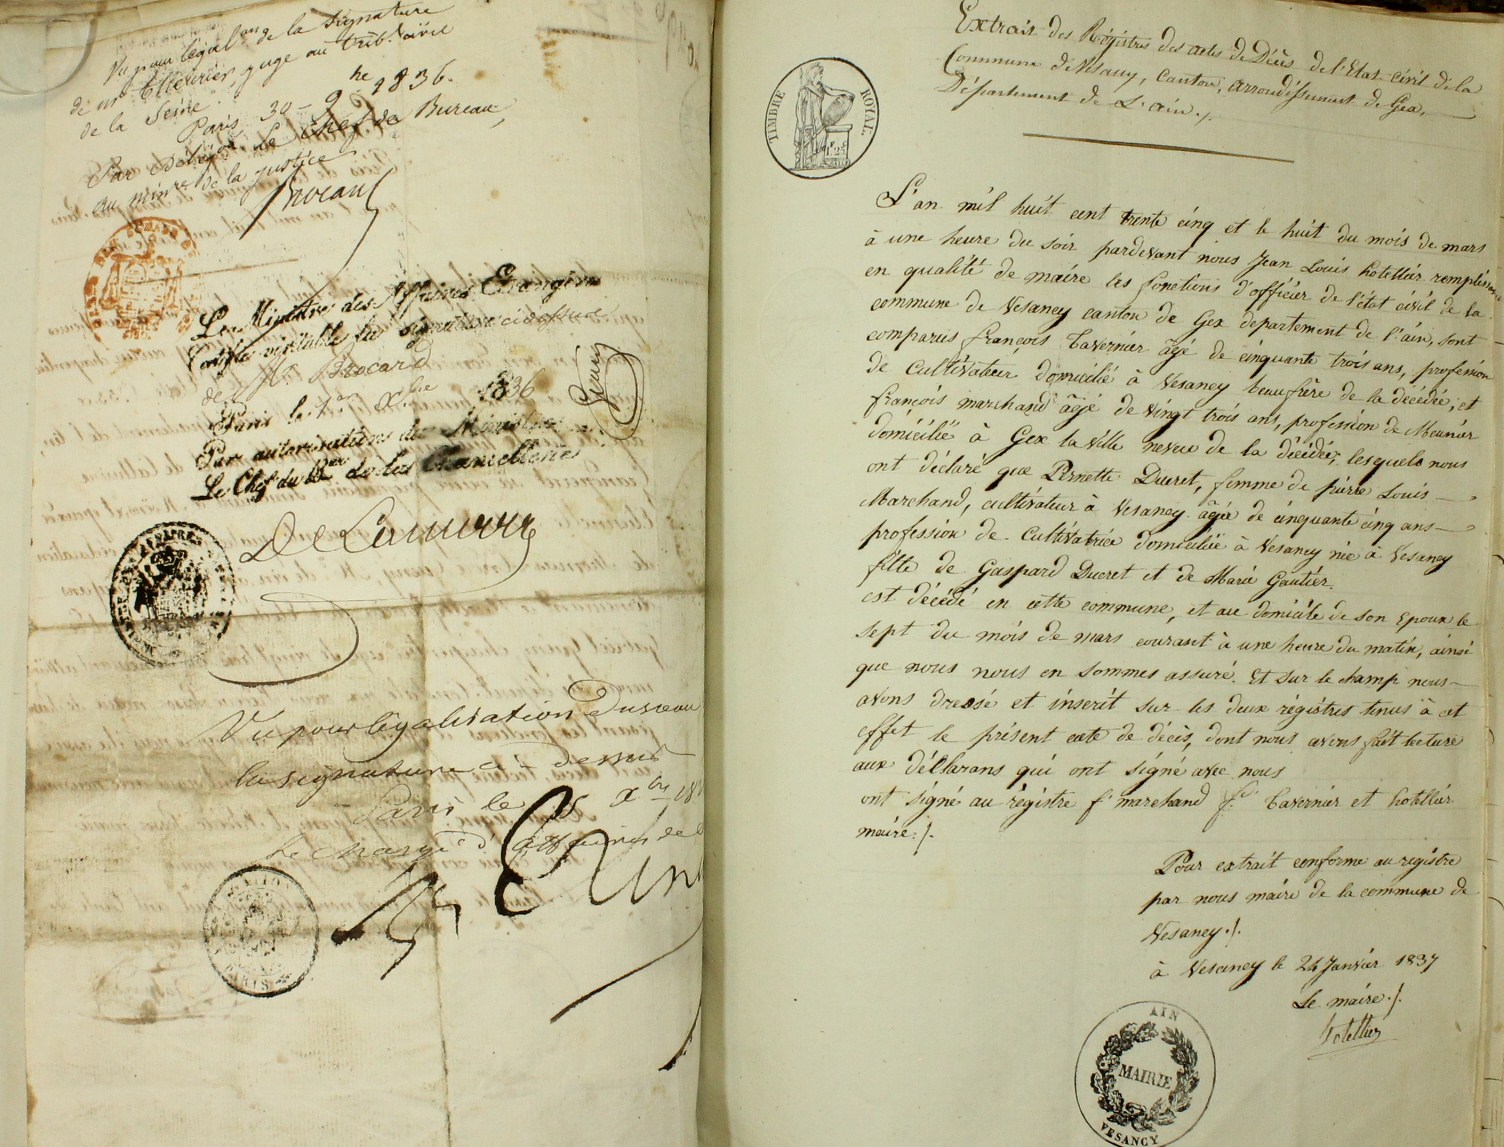 Vu pour légal.on de la signature
de Mr Ellevrier, juge au trib.l civil
de la Seine
Paris 30 - 9bre 1836.
Par Délég.on Le Chef de Bureau
au minre de la justice
Brocard
Le Ministre des Affaires Etrangères
Certifie véritable la signature ci dessus
de Mr Brocard
Paris le 1er Xbre 1836
Par autorisation du Ministre
Le Chef du Bau de la Chancellerie
De Lamarre
Vu pour légalisation du sceau
la signature ci-dessus
Paris le 5 Xbre 18
Le chargé d'affaires de
PARIS
TIMBRE ROYAL
1F 25C
Extrait des Régistres des actes de Décès de l'Etat-civil de la
Commune de Vesancy, canton, arrondissement de Gex,
Département de L'ain./.
L'an mil huit cent trente cinq et le huit du mois de mars
à une heure du soir pardevant nous Jean Louis hotellier remplissant
en qualité de maire les fonctions d'officier de l'état civil de la
commune de Vesancy canton de Gex departement de l'ain, sont
comparus françois Tavernier âgé de cinquante trois ans, profession
de Cultivateur domicilié à Vesancy beaufrère de la décédée, et
françois marchand âgé de vingt trois ans, profession de Meunier
domicilié à Gex la ville neveu de la décédée, lesquels nous
ont déclaré que Pernette Ducret, femme de pierre Louis
Marchand, cultivateur à Vesancy agée de cinquante cinq ans
profession de Cultivatrice domiciliée à Vesancy née à Vesancy
fille de Gaspard Ducret et de Marie Gautier
est décédé en cette commune, et au domicile de son epoux le
sept du mois de mars courant à une heure du matin, ainsi
que nous nous en sommes assuré. Et sur le champ nous
avons dressé et inscrit sur les deux régistres tenus à cet
effet le présent acte de décès, dont nous avons fait lecture
aux déclarans qui ont signé avec nous
ont signé au régistre f. marchand f. Tavernier et hotellier
maire./.
Pour extrait conforme au registre
par nous maire de la commune de
Vesancy./.
à Vesancy le 24 Janvier 1837
Le maire./.
hotellier
AIN
MAIRIE
VESANCY